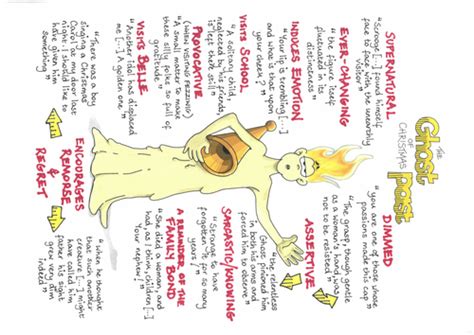 THE
Ghost
OF
CHRISTMAS
past
SUPERNATURAL
"Scrooge [...] found himself
face to face with the unearthly
visitor"
EVER-CHANGING
"the figure itself
fluctuated in its
distinctness"
INDUCES EMOTION
"Your lip is trembling [...]
and what is that upon
your cheek?"
VISITS SCHOOL
"A solitary child,
neglected by his friends,
is left there still"
PROVOCATIVE
(WHEN VISITING FEZZIWIG)
"A small matter to make
these silly folks so full of
gratitude"
VISITS BELLE
"Another idol has displaced
me [...] A golden one"
DIMMED
"you are one of those whose
passions made this cap"
"The grasp, though gentle
as a woman's hand, was
not to be resisted"
ASSERTIVE
"the relentless
Ghost pinioned him
in both his arms and
forced him to observe"
SARCASTIC/KNOWING
"Strange to have
forgotten it for so many
years!"
A REMINDER OF THE
FAMILY BOND
"She died a woman, and
had, as I think, children [...]
Your nephew!"
"There was a boy
singing a Christmas
Carol at my door last
night. I should like to
have given him
something"
ENCOURAGES
REMORSE &
REGRET
"when he thought
that such another
creature [...] might
have called him
father his sight
grew very dim
indeed"